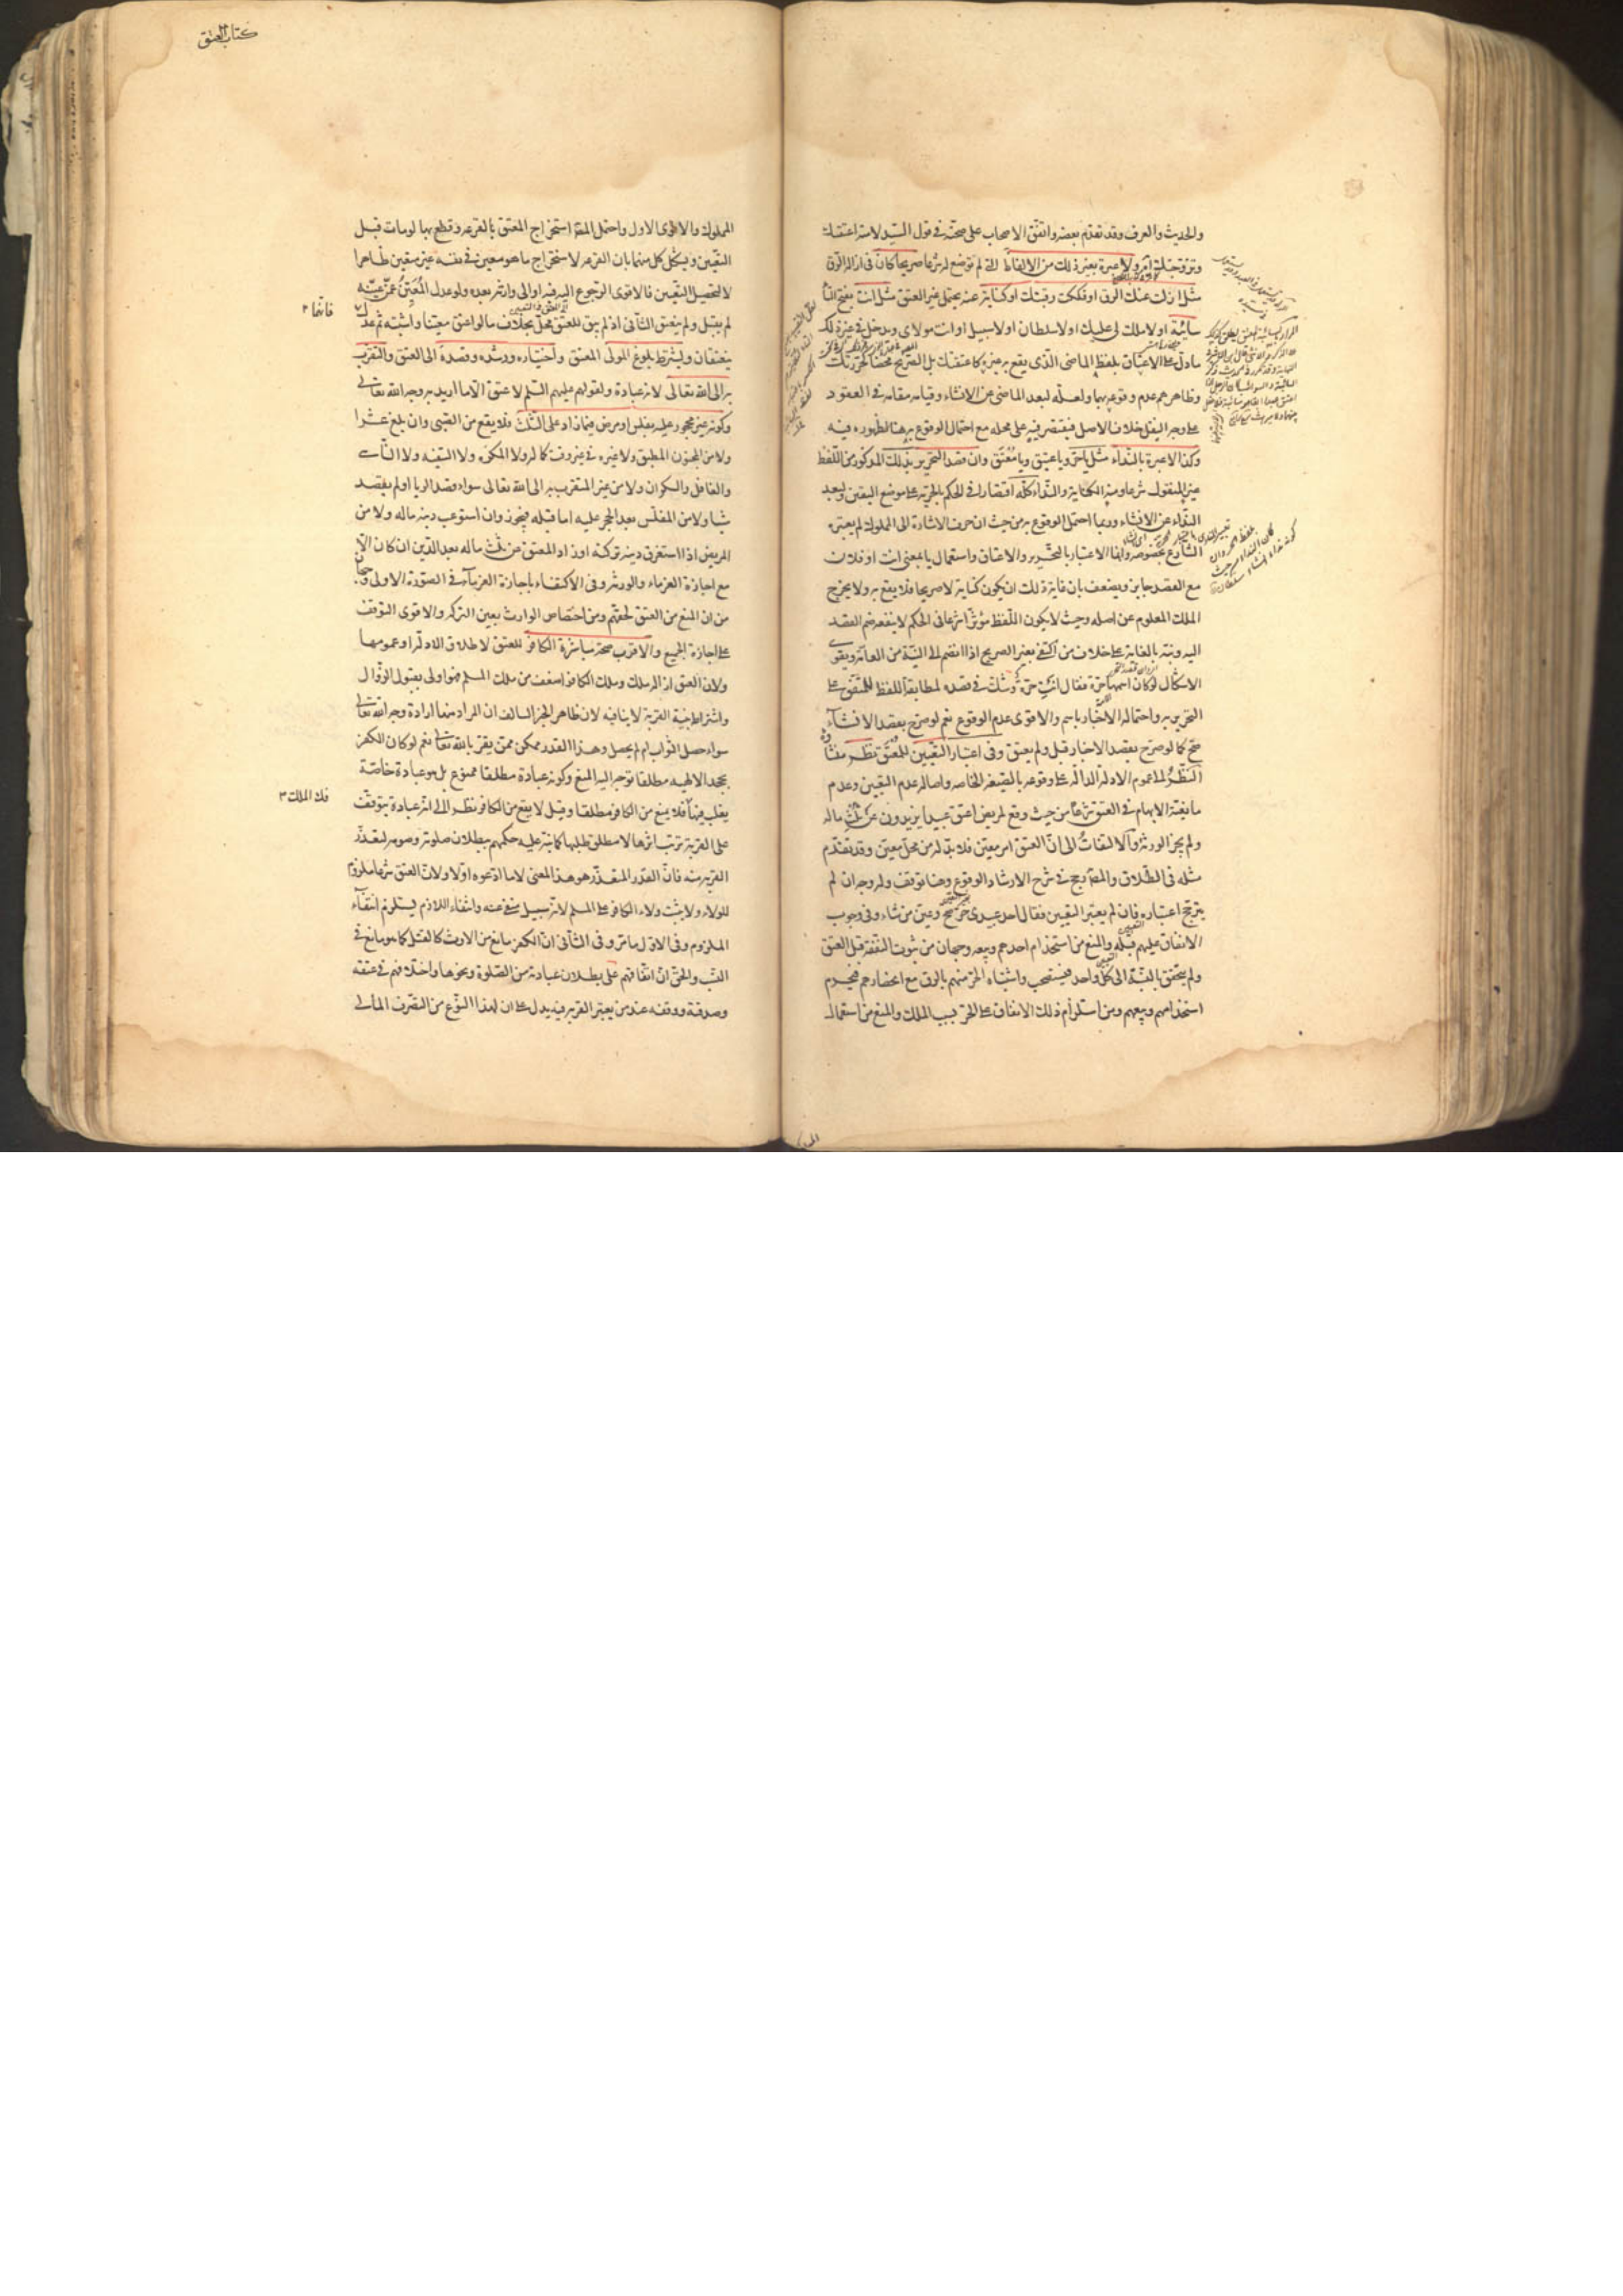 والحديث والعرف وقد تقدم بعضه واتفق الاصحاب على صحته في قول السيد لامته اعتقتك
وتزوجتك اه ولا عبرة بغير ذلك من الالفاظ التي لم توضع له شرعا صريحا كان في ازالة الرق
مثل ازلت عنك الرق او فككت رقبتك او كناية عنه يحتمل غير العتق مثل انت بفتح التا
سائبة او لا ملك لى عليك او لا سلطان او لا سبيل او انت مولاى ويدخل في غير ذلك
مادل على الاعتاق بلفظ الماضى الذى يقع به غيره كاعتقتك بل الصريح محضا كحررتك
وظاهرهم عدم وقوعه بهما ولعله لبعد الماضى عن الانشاء وقيامه مقامه في العقود
على وجه النقل خلاف الاصل فيقتصر فيه على محله مع احتمال الوقوع به هنا لظهوره فيه
وكذا لا عبرة بالنداء مثل يا حر ويا عتيق ويا معتق وان قصد التحرير بذلك المذكور من اللفظ
غير المنقول شرعا ومنه الكناية والنداء كله اقتصارا في الحكم بالحرية على موضع اليقين ولبعد
النداء عن الانشاء وربما احتمل الوقوع به من حيث ان حرف الاشارة الى المملوك لم يعتبره
الشارع بخصوصه وانما الاعتبار بالتحرير والاعتاق واستعمال يا بمعنى انت او فلان
مع القصد جايز ويضعف بان غاية ذلك ان يكون كناية لا صريحا فلا يقع به ولا يخرج
الملك المعلوم عن اصله وحيث لا يكون اللفظ مؤثرا شرعا في الحكم لا ينفعه ضم القصد
اليه ونبه بالغاية على خلاف من اكتفى بغير الصريح اذا انضم الى النية من العامة ويقوى
الاشكال لو كان اسمها حرة فقال انت حرة وشك في قصده لمطابقة اللفظ للمتفق على
التحرير به واحتمال الاخبار باسم والاقوى عدم الوقوع نعم لو صرح بقصد الانشآء
صح كما لو صرح بقصد الاخبار قبل ولم يعتق وفى اعتبار التعيين للمعتق نظر منشأ
النظر عموم الادلة الدالة على وقوعه بالصيغة الخاصه واصالة عدم التعيين وعدم
مانعية الابهام في العتق شرعا من حيث وقع لمريض اعتق عبيدا يزيدون عن ثلث ماله
ولم يجز الورثة والالتفات الى ان العتق امر معين فلا بد له من محل معين وقد تقدم
مثله فى الطلاق والمصنف رجح في شرح الارشاد الوقوع وهنا توقف وله وجه ان لم
يترجح اعتباره فان لم يعتبر التعيين فقال احد عبيدى حر صح وعين من شاء وفى وجوب
الانفاق عليهم قبله والمنع من استخدام احدهم وبيعه وجهان من ثبوت النفقة قبل العتق
ولم يتحقق بالنسبة الى كل واحد فيستصحب واشتباه الحر منهم بالرق مع انحصارهم فيحرم
استخدامهم وبيعهم ومن استلزام ذلك الانفاق على الحر بسبب الملك والمنع من استعمال
كتاب العتق
المملوك والاقوى الاول واحتمل المصنف استخراج المعتق بالقرعه وقطع بها لو مات قبل
التعيين ويشكل كل منهما بان القرعة لاستخراج ما هو معين في نفسه غير متعين ظاهرا
لا لتحصيل التعيين فالاقوى الرجوع اليه فيه او الى وارثه بعده ولو عدل المعين عمن عينه
لم يقبل ولم ينعتق الثانى اذ لم يبق للعتق محل بخلاف ما لو اعتق معينا واشتبه ثم عدل
فانهما ٢
ينعتقان ويشترط بلوغ المولى المعتق واختياره ورشده وقصده الى العتق والتقرب
به الى الله تعالى لانه عبادة ولقولهم عليهم السلم لا عتق الا ما اريد به وجه الله تعالى
وكونه غير محجور عليه بفلس او مرض فيما زاد على الثلث فلا يقع من الصبى وان بلغ عشرا
ولا من المجنون المطبق ولا غيره في غير وقت كماله ولا المكره ولا السفيه ولا الناسى
والغافل والسكران ولا من غير المتقرب به الى الله تعالى سواء قصد الريا او لم يقصد
شيا ولا من المفلس بعد الحجر عليه اما قبله فيجوز وان استوعب دينه ماله ولا من
المريض اذا استغرق دينه تركته او زاد المعتق عن ثلث ماله بعد الدين ان كان الا
مع اجازة الغرماء والورثه وفى الاكتفاء باجازة الغرمآء في الصورة الاولى وجهان
من ان المنع من العتق لحقهم ومن اختصاص الوارث بعين التركه والاقوى التوقف
على اجازة الجميع والاقرب صحة مباشرة الكافر للعتق لاطلاق الادلة او عمومها
ولان العتق ازالة ملك وملك الكافر اضعف من ملك المسلم فهو اولى بقبول الزوال
واشتراط بنية القربة لا ينافيه لان ظاهر الخبر السالف ان المراد منها ارادة وجه الله تعالى
سواء حصل الثواب ام لم يحصل وهذا القدر ممكن ممن يقر بالله تعالى نعم لو كان الكفر
بجحد الالهيه مطلقا توجه اليه المنع وكونه عبادة مطلقا ممنوع بل هو عبادة خاصة
يغلب فيها فلا يمنع من الكافر مطلقا وقيل لا يقع من الكافر نظرا الى انه عبادة يتوقف
فك الملك ٣
على القربة ترتب اثرها لا مطلق طلبها كما نبه عليه حكمهم ببطلان صلوته وصومه لتعذر
القربه منه فان القدر المتعذر هو هذا المعنى لا ما ادعوه اولا ولان العتق شرعا ملزوم
للولاء ولا يثبت ولاء الكافر على المسلم لانه سبيل منفى عنه وانتفاء اللازم يستلزم انتفآء
الملزوم وفى الاول ما مر وفى الثانى ان الكفر مانع من الارث كالقتل كما هو مانع في
النسب والحق ان اتفاقهم على بطلان عبادته من الصلوة ونحوها واختلافهم في عتقه
وصدقته ووقفه عند من يعتبر القربه فيه يدل على ان لهذا النوع من التصرف المالى